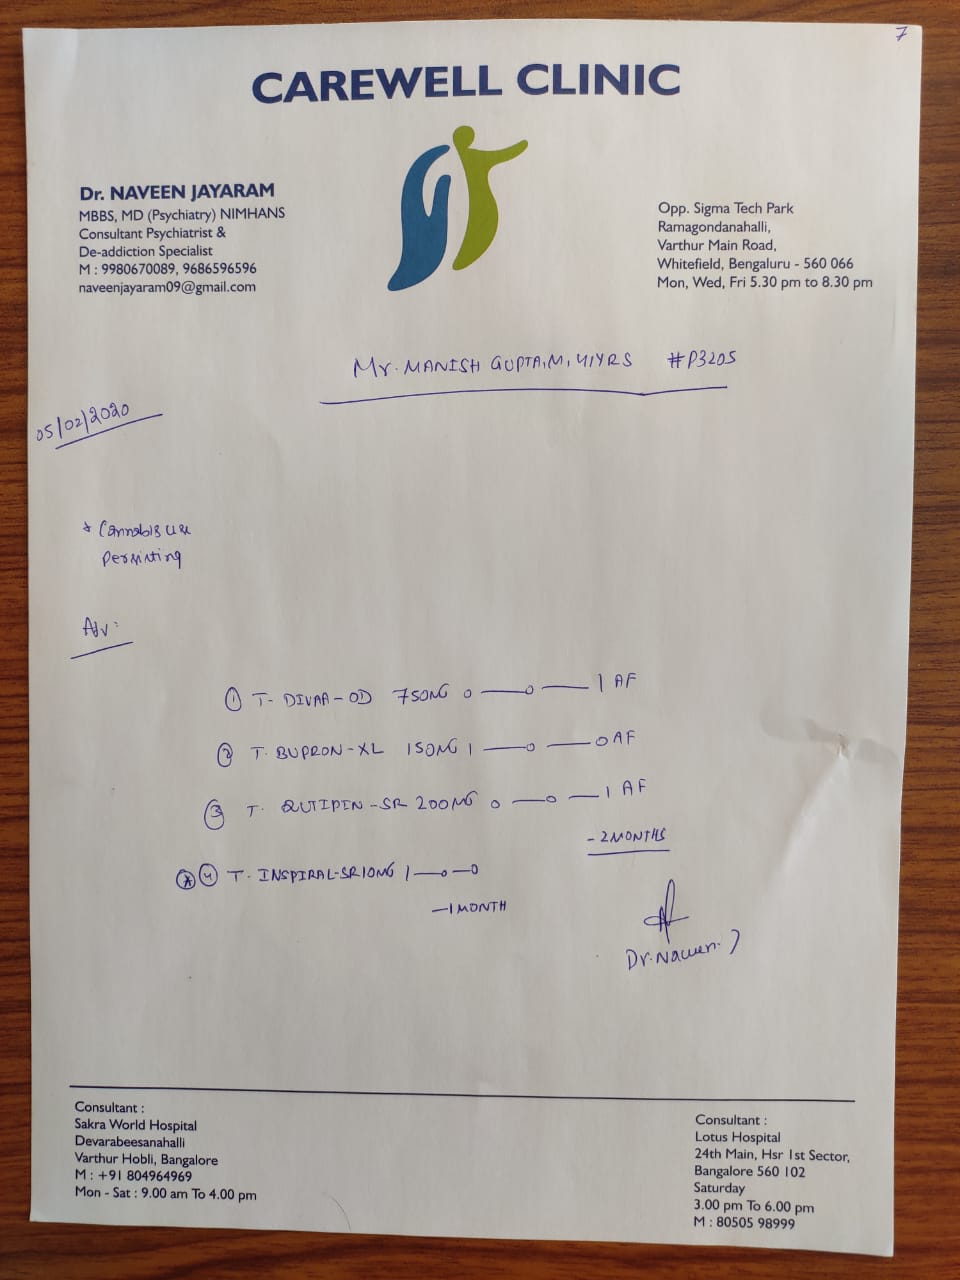 7
CAREWELL CLINIC
Dr. NAVEEN JAYARAM
MBBS, MD (Psychiatry) NIMHANS
Consultant Psychiatrist &
De-addiction Specialist
M : 9980670089, 9686596596
naveenjayaram09@gmail.com
Opp. Sigma Tech Park
Ramagondanahalli,
Varthur Main Road,
Whitefield, Bengaluru - 560 066
Mon, Wed, Fri 5.30 pm to 8.30 pm
Mr. MANISH GUPTA, M, 41YRS #P3205
05/02/2020
* Cannabis use
Persisting
Adv:
① T- DIVAA-OD 750MG 0 — 0 — 1 AF
② T. BUPRON-XL 150MG 1 — 0 — 0 AF
③ T. QUTIPIN-SR 200MG 0 — 0 — 1 AF
- 2 MONTHS
* ④ T. INSPIRAL-SR 10MG 1 — 0 — 0
- 1 MONTH
Dr. Naveen. J
Consultant :
Sakra World Hospital
Devarabeesanahalli
Varthur Hobli, Bangalore
M : +91 804964969
Mon - Sat : 9.00 am To 4.00 pm
Consultant :
Lotus Hospital
24th Main, Hsr 1st Sector,
Bangalore 560 102
Saturday
3.00 pm To 6.00 pm
M : 80505 98999